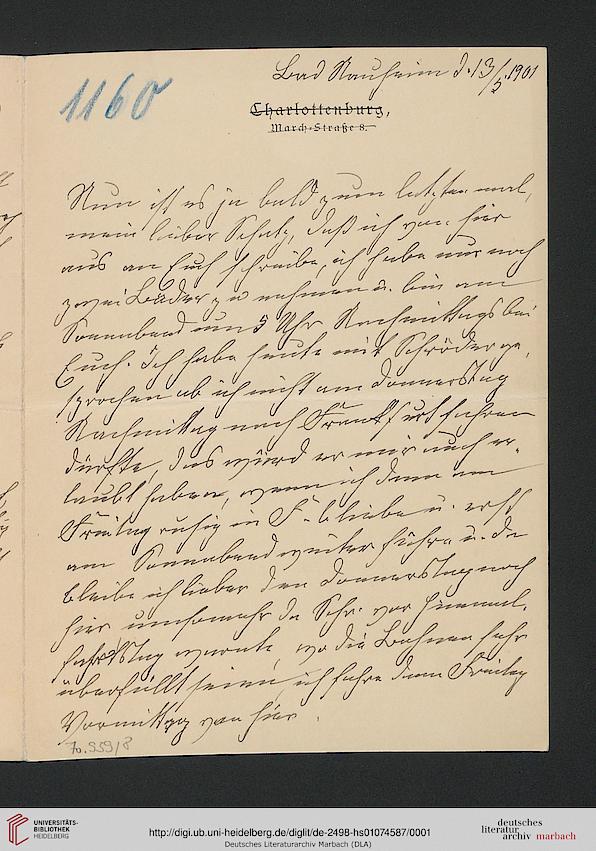 Bad Nauheim d. 13/5. 1901
1160
Charlottenburg,
March-Straße 8.
Nun ist es ja bald zum letzten mal,
mein lieber Schatz, daß ich von hier
aus an Euch schreibe, ich habe nur noch
zwei Bäder zu nehmen u. bin am
Sonnabend um 5 Uhr Nachmittags bei
Euch. Ich habe heute mit Schröder ge-
sprochen ob ich nicht am Donnerstag
Nachmittag nach Frankfurt fahren
dürfte, das würd er mir auch er-
laubt haben, wenn ich dann am
Freitag ruhig in F. bliebe u. erst
am Sonnabend weiter führe u. da
bleibe ich lieber den Donnerstag noch
hier umsomehr da Schr. vor Himmel-
fahrtstag warnte, wo die Bahnen sehr
überfüllt seien, ich fahre dann Freitag
Vormittag von hier.
70.959/8
UNIVERSITÄTS-
BIBLIOTHEK
HEIDELBERG
http://digi.ub.uni-heidelberg.de/diglit/de-2498-hs01074587/0001
Deutsches Literaturarchiv Marbach (DLA)
deutsches
literatur
archiv marbach